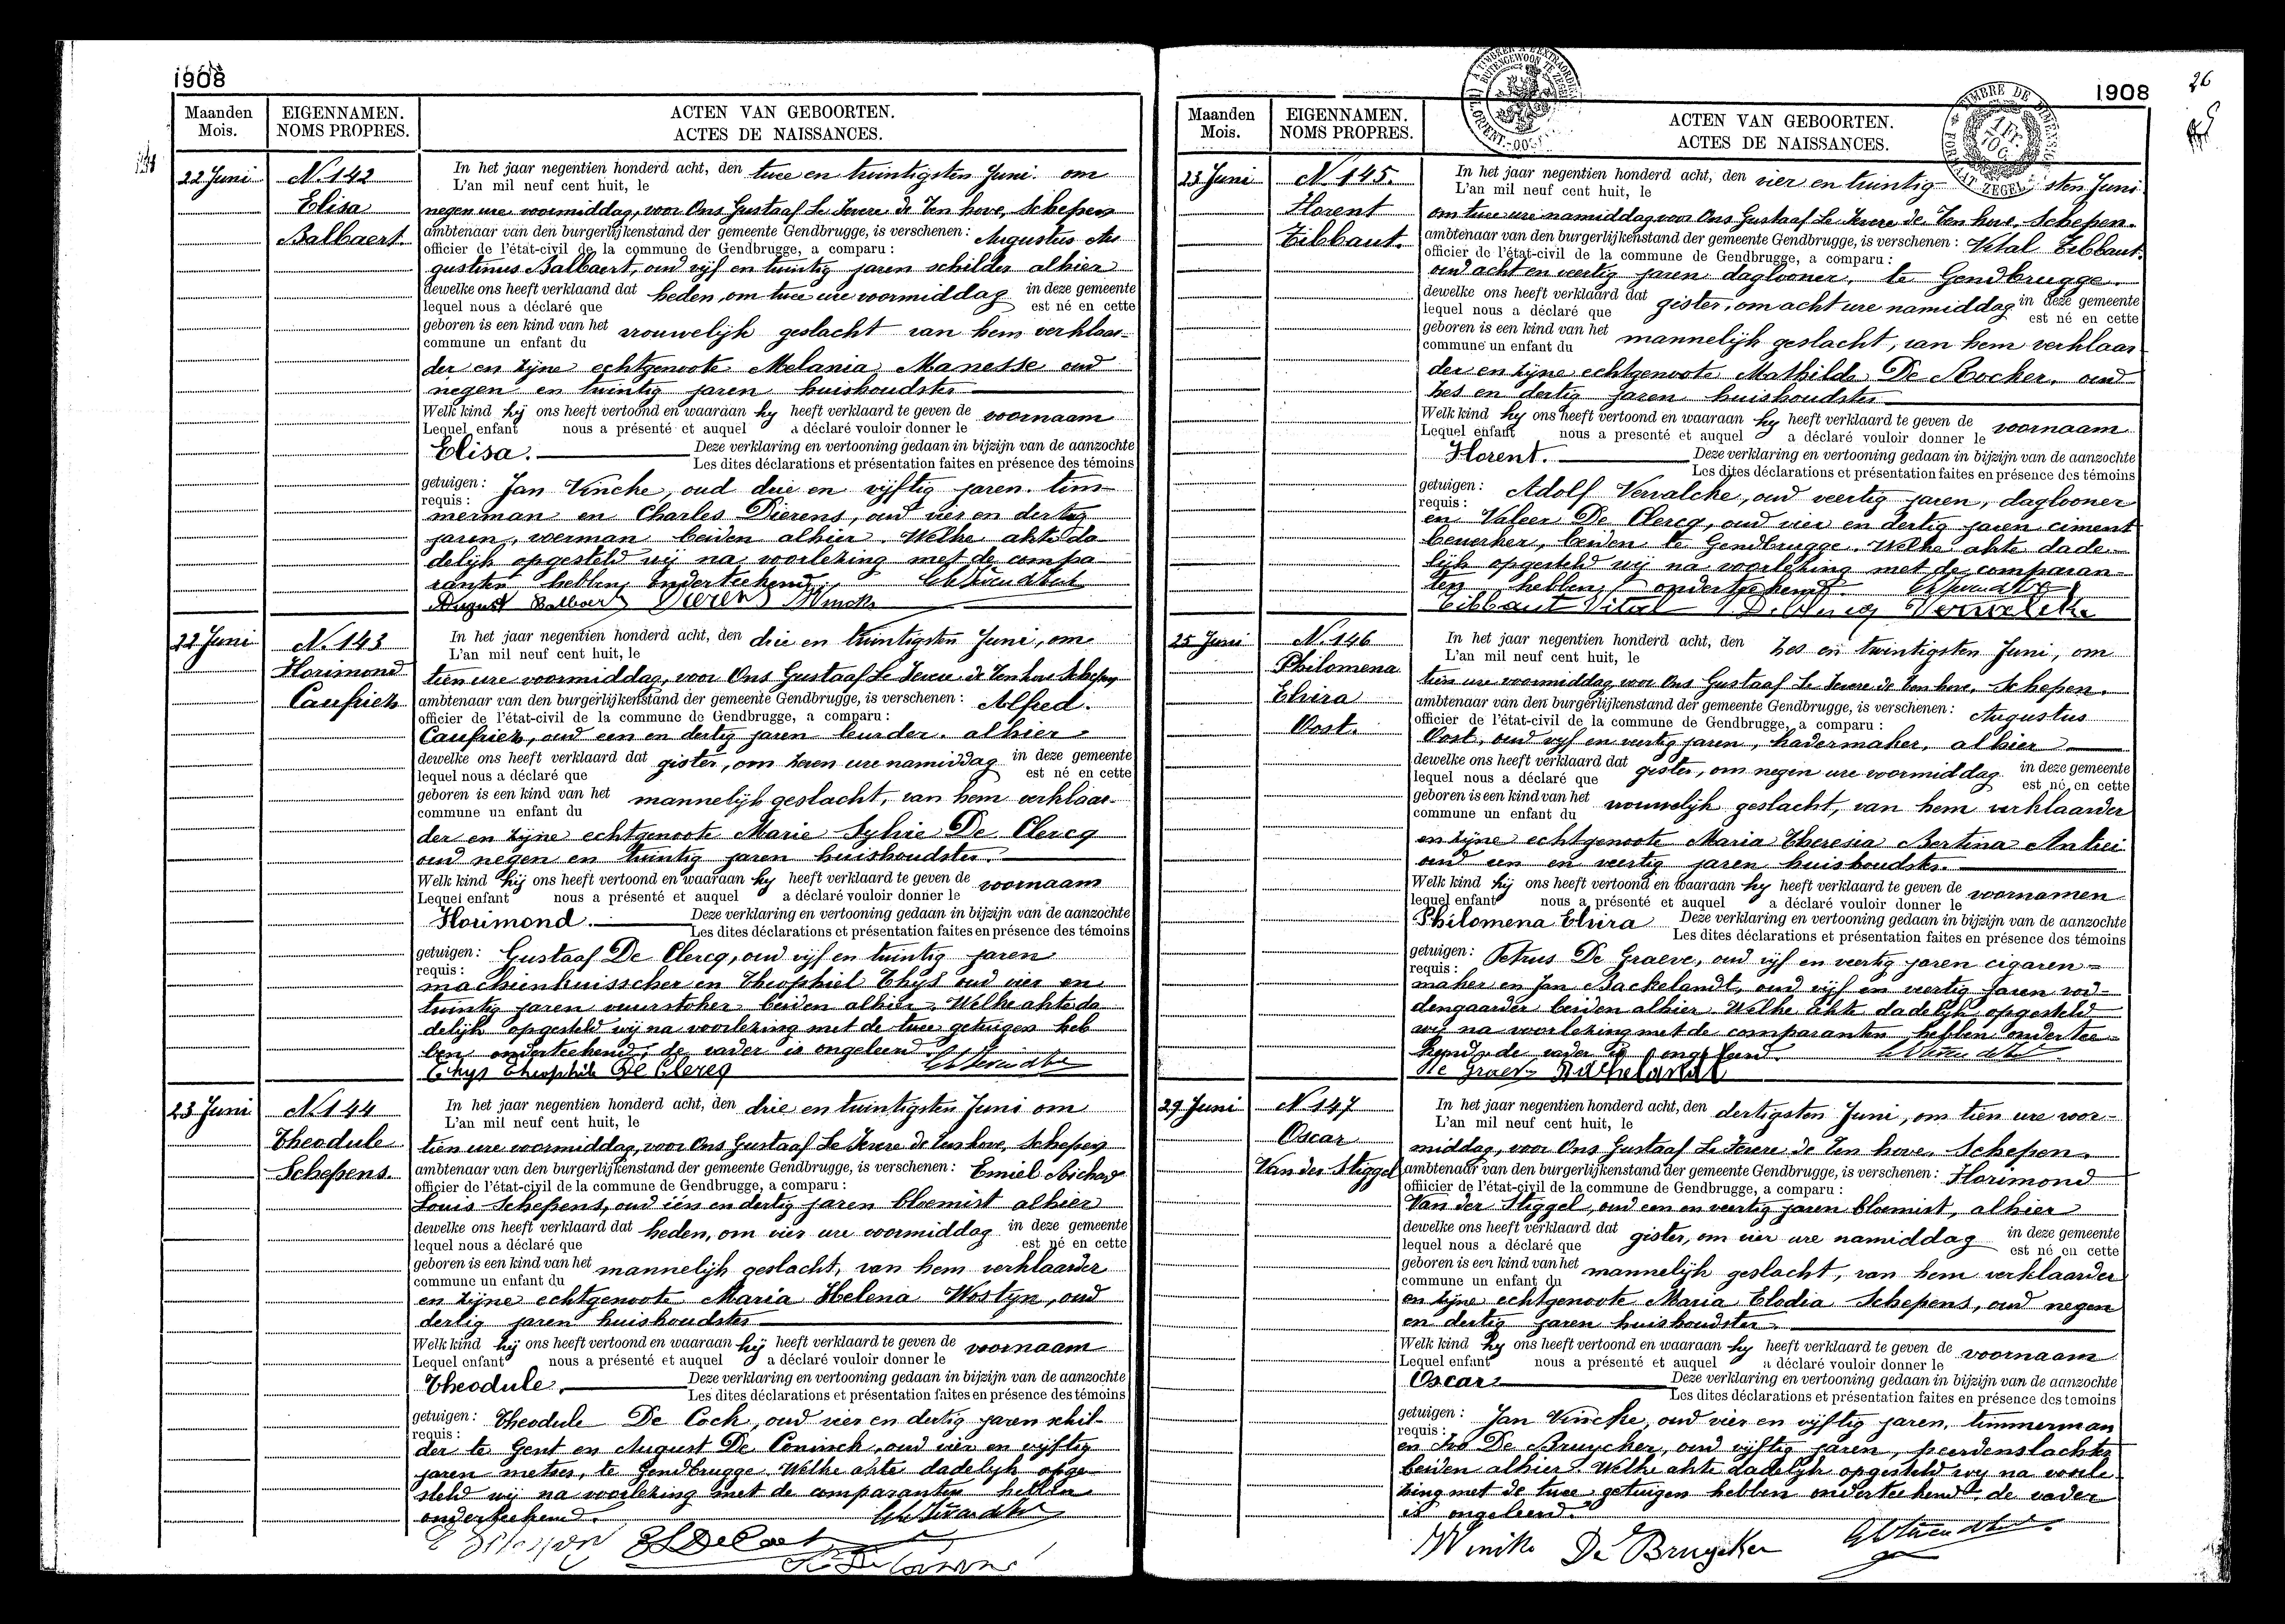 1908
Maanden
Mois.
EIGENNAMEN.
NOMS PROPRES.
ACTEN VAN GEBOORTEN.
ACTES DE NAISSANCES.
22 Juni
N. 142
Elisa
Balbaert.
In het jaar negentien honderd acht, den twee en twintigsten Juni. om
L'an mil neuf cent huit, le
negen ure voormiddag, voor Ons Gustaaf Le Fevere de Ten hove, Schepen
ambtenaar van den burgerlijkenstand der gemeente Gendbrugge, is verschenen : Augustus Au
officier de l'état-civil de la commune de Gendbrugge, a comparu :
gustinus Balbaert, oud vijf en twintig jaren schilder alhier
dewelke ons heeft verklaand dat heden, om twee ure voormiddag in deze gemeente
lequel nous a déclaré que est né en cette
geboren is een kind van het vrouwelijk geslacht van hem verklaar-
commune un enfant du
der en zijne echtgenoote Melania Manesse oud
negen en twintig jaren huishoudster
Welk kind hij ons heeft vertoond en waaraan hy heeft verklaard te geven de voornaam
Lequel enfant nous a présenté et auquel a déclaré vouloir donner le
Elisa. Deze verklaring en vertooning gedaan in bijzijn van de aanzochte
Les dites déclarations et présentation faites en présence des témoins
getuigen : Jan Vincke, oud drie en vijftig jaren. tim-
requis :
merman en Charles Dierens, oud vier en dertig
jaren, werman beiden alhier. Welke akte da
delijk opgesteld wij na voorlezing met de compa-
ranten hebben onderteekend.
August Balbaert Dierens Vincke
22 Juni
N. 143
Florimond
Caufriez
In het jaar negentien honderd acht, den drie en twintigsten Juni, om
L'an mil neuf cent huit, le
tien ure voormiddag, voor Ons Gustaaf Le Fevere de Ten hove Schepen
ambtenaar van den burgerlijkenstand der gemeente Gendbrugge, is verschenen : Alfred.
officier de l'état-civil de la commune de Gendbrugge, a comparu :
Caufriez, oud een en dertig jaren leurder. alhier
dewelke ons heeft verklaard dat gister, om zeven ure namiddag in deze gemeente
lequel nous a déclaré que est né en cette
geboren is een kind van het mannelijk geslacht, van hem verklaar-
commune un enfant du
der en zijne echtgenoote Marie Sylvie De Clercq
oud negen en twintig jaren huishoudster.
Welk kind hij ons heeft vertoond en waaraan hy heeft verklaard te geven de voornaam
Lequel enfant nous a présenté et auquel a déclaré vouloir donner le
Florimond. Deze verklaring en vertooning gedaan in bijzijn van de aanzochte
Les dites déclarations et présentation faites en présence des témoins
getuigen : Gustaaf De Clercq, oud vijf en twintig jaren
requis :
machienkuisscher en Theophiel Thijs oud vier en
twintig jaren vuurstoker beiden alhier. Welke akte da
delijk opgesteld wij na voorlezing met de twee getuigen heb
ben onderteekend, de vader is ongeleerd
Thys Theophile De Clercq
23 Juni
N. 144
Theodule
Schepens.
In het jaar negentien honderd acht, den drie en twintigsten Juni om
L'an mil neuf cent huit, le
tien ure voormiddag, voor Ons Gustaaf Le Fevere de Ten hove, Schepen
ambtenaar van den burgerlijkenstand der gemeente Gendbrugge, is verschenen : Emiel Richard
officier de l'état-civil de la commune de Gendbrugge, a comparu :
Louis Schepens, oud één en dertig jaren bloemist alhier
dewelke ons heeft verklaard dat heden, om vier ure voormiddag in deze gemeente
lequel nous a déclaré que est né en cette
geboren is een kind van het mannelijk geslacht, van hem verklaarder
commune un enfant du
en zijne echtgenoote Maria Helena Wostyn, oud
dertig jaren huishoudster
Welk kind hij ons heeft vertoond en waaraan hij heeft verklaard te geven de voornaam
Lequel enfant nous a présenté et auquel a déclaré vouloir donner le
Theodule. Deze verklaring en vertooning gedaan in bijzijn van de aanzochte
Les dites déclarations et présentation faites en présence des témoins
getuigen : Theodule De Cock, oud vier en dertig jaren schil-
requis :
der te Gent en August De Coninck, oud vier en vijftig
jaren metser, te Gendbrugge. Welke akte dadelijk opge-
steld wij na voorlezing met de comparanten hebben
onderteekend.
1908
26
Maanden
Mois.
EIGENNAMEN.
NOMS PROPRES.
ACTEN VAN GEBOORTEN.
ACTES DE NAISSANCES.
23 Juni
N. 145.
Florent
Tibbaut.
In het jaar negentien honderd acht, den vier en twintigsten Juni
L'an mil neuf cent huit, le
om twee ure namiddag voor Ons Gustaaf Le Fevere de Ten hove. Schepen.
ambtenaar van den burgerlijkenstand der gemeente Gendbrugge, is verschenen : Vital Tibbaut.
officier de l'état-civil de la commune de Gendbrugge, a comparu :
oud acht en veertig jaren daglooner, te Gendbrugge.
dewelke ons heeft verklaard dat gister, om acht ure namiddag in deze gemeente
lequel nous a déclaré que est né en cette
geboren is een kind van het mannelijk geslacht, van hem verklaar
commune un enfant du
der en zijne echtgenoote Mathilde De Rocker, oud
zes en dertig jaren huishoudster
Welk kind hy ons heeft vertoond en waaraan hy heeft verklaard te geven de voornaam
Lequel enfant nous a presenté et auquel a déclaré vouloir donner le
Florent. Deze verklaring en vertooning gedaan in bijzijn van de aanzochte
Les dites déclarations et présentation faites en présence des témoins
getuigen : Adolf Vervalcke, oud veertig jaren, daglooner
requis :
en Valeer De Clercq, oud vier en dertig jaren ciment
bewerker, beiden te Gendbrugge. Welke akte dade-
lijk opgesteld wij na voorlezing met de comparan-
ten hebben onderteekend.
Tibbaut Vital De Clercq Vervalcke
25 Juni
N. 146
Philomena
Elvira
Oost.
In het jaar negentien honderd acht, den zes en twintigsten Juni, om
L'an mil neuf cent huit, le
tien ure voormiddag, voor Ons Gustaaf Le Fevere de Ten hove. Schepen.
ambtenaar van den burgerlijkenstand der gemeente Gendbrugge, is verschenen : Augustus
officier de l'état-civil de la commune de Gendbrugge, a comparu :
Oost, oud vijf en veertig jaren, kadermaker, alhier
dewelke ons heeft verklaard dat gister, om negen ure voormiddag in deze gemeente
lequel nous a déclaré que est né en cette
geboren is een kind van het vrouwelijk geslacht, van hem verklaarder
commune un enfant du
en zijne echtgenoote Maria Theresia Bertina
oud een en veertig jaren huishoudster.
Welk kind hij ons heeft vertoond en waaraan hy heeft verklaard te geven de voornamen
lequel enfant nous a présenté et auquel a déclaré vouloir donner le
Philomena Elvira Deze verklaring en vertooning gedaan in bijzijn van de aanzochte
Les dites déclarations et présentation faites en présence des témoins
getuigen : Petrus De Graeve, oud vijf en veertig jaren cigaren-
requis :
maker en Jan Backelandt, oud vijf en veertig jaren vod-
dengaarder beiden alhier Welke akte dadelijk opgesteld
wij na voorlezing met de comparanten hebben ondertee-
kend, de vader is ongeleerd.
De Graeve Backelandt
29 Juni
N 147
Oscar
Van der Stiggel
In het jaar negentien honderd acht, den dertigsten Juni, om tien ure voor-
L'an mil neuf cent huit, le
middag, voor Ons Gustaaf Le Fevere de Ten hove. Schepen.
ambtenaar van den burgerlijkenstand der gemeente Gendbrugge, is verschenen : Florimond
officier de l'état-civil de la commune de Gendbrugge, a comparu :
Van der Stiggel, oud een en veertig jaren bloemist, alhier
dewelke ons heeft verklaard dat gister, om vier ure namiddag in deze gemeente
lequel nous a déclaré que est né en cette
geboren is een kind van het mannelijk geslacht, van hem verklaarder
commune un enfant du
en zijne echtgenoote Maria Elodia Schepens, oud negen
en dertig jaren huishoudster
Welk kind hy ons heeft vertoond en waaraan hy heeft verklaard te geven de voornaam
Lequel enfant nous a présenté et auquel a déclaré vouloir donner le
Oscar Deze verklaring en vertooning gedaan in bijzijn van de aanzochte
Les dites déclarations et présentation faites en présence des temoins
getuigen : Jan Vincke, oud vier en vijftig jaren, timmerman
requis :
en Ivo De Bruycker, oud vijftig jaren, peerdenslachter
beiden alhier. Welke akte dadelijk opgesteld wy na voorle
zing met de twee getuigen hebben onderteekend. de vader
is ongeleerd.
Vincke De Bruycker